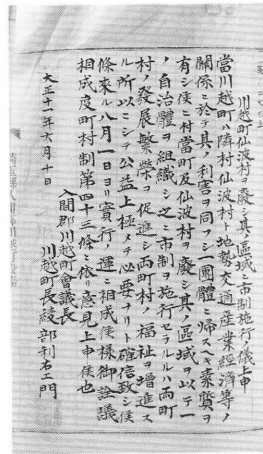 川越町仙波村ヲ廃シ其區域ニ市制施行ノ儀上申
當川越町ハ隣村仙波村ト地勢交通産業經済等ノ
關係ニ於テ其ノ利害ヲ同フシ一團體ニ帰スベキ素質ヲ
有シ候ニ付當町及仙波村ヲ廃シ其ノ區域ヲ以テ一
ノ自治體ヲ組織シ之ニ市制ヲ施行セラルルハ両町
村ノ發展繁榮ヲ促進シ両町村ノ福祉ヲ増進ス
ル所以ニシテ公益上極メテ必要ナリト確信致シ候
條来ル八月一日ヨリ實行ノ運ニ相成候様御詮議
相成度町村制第四十三條ニ依リ意見上申候也
大正十一年六月十日
入間郡川越町會議長
川越町長綾部利右エ門